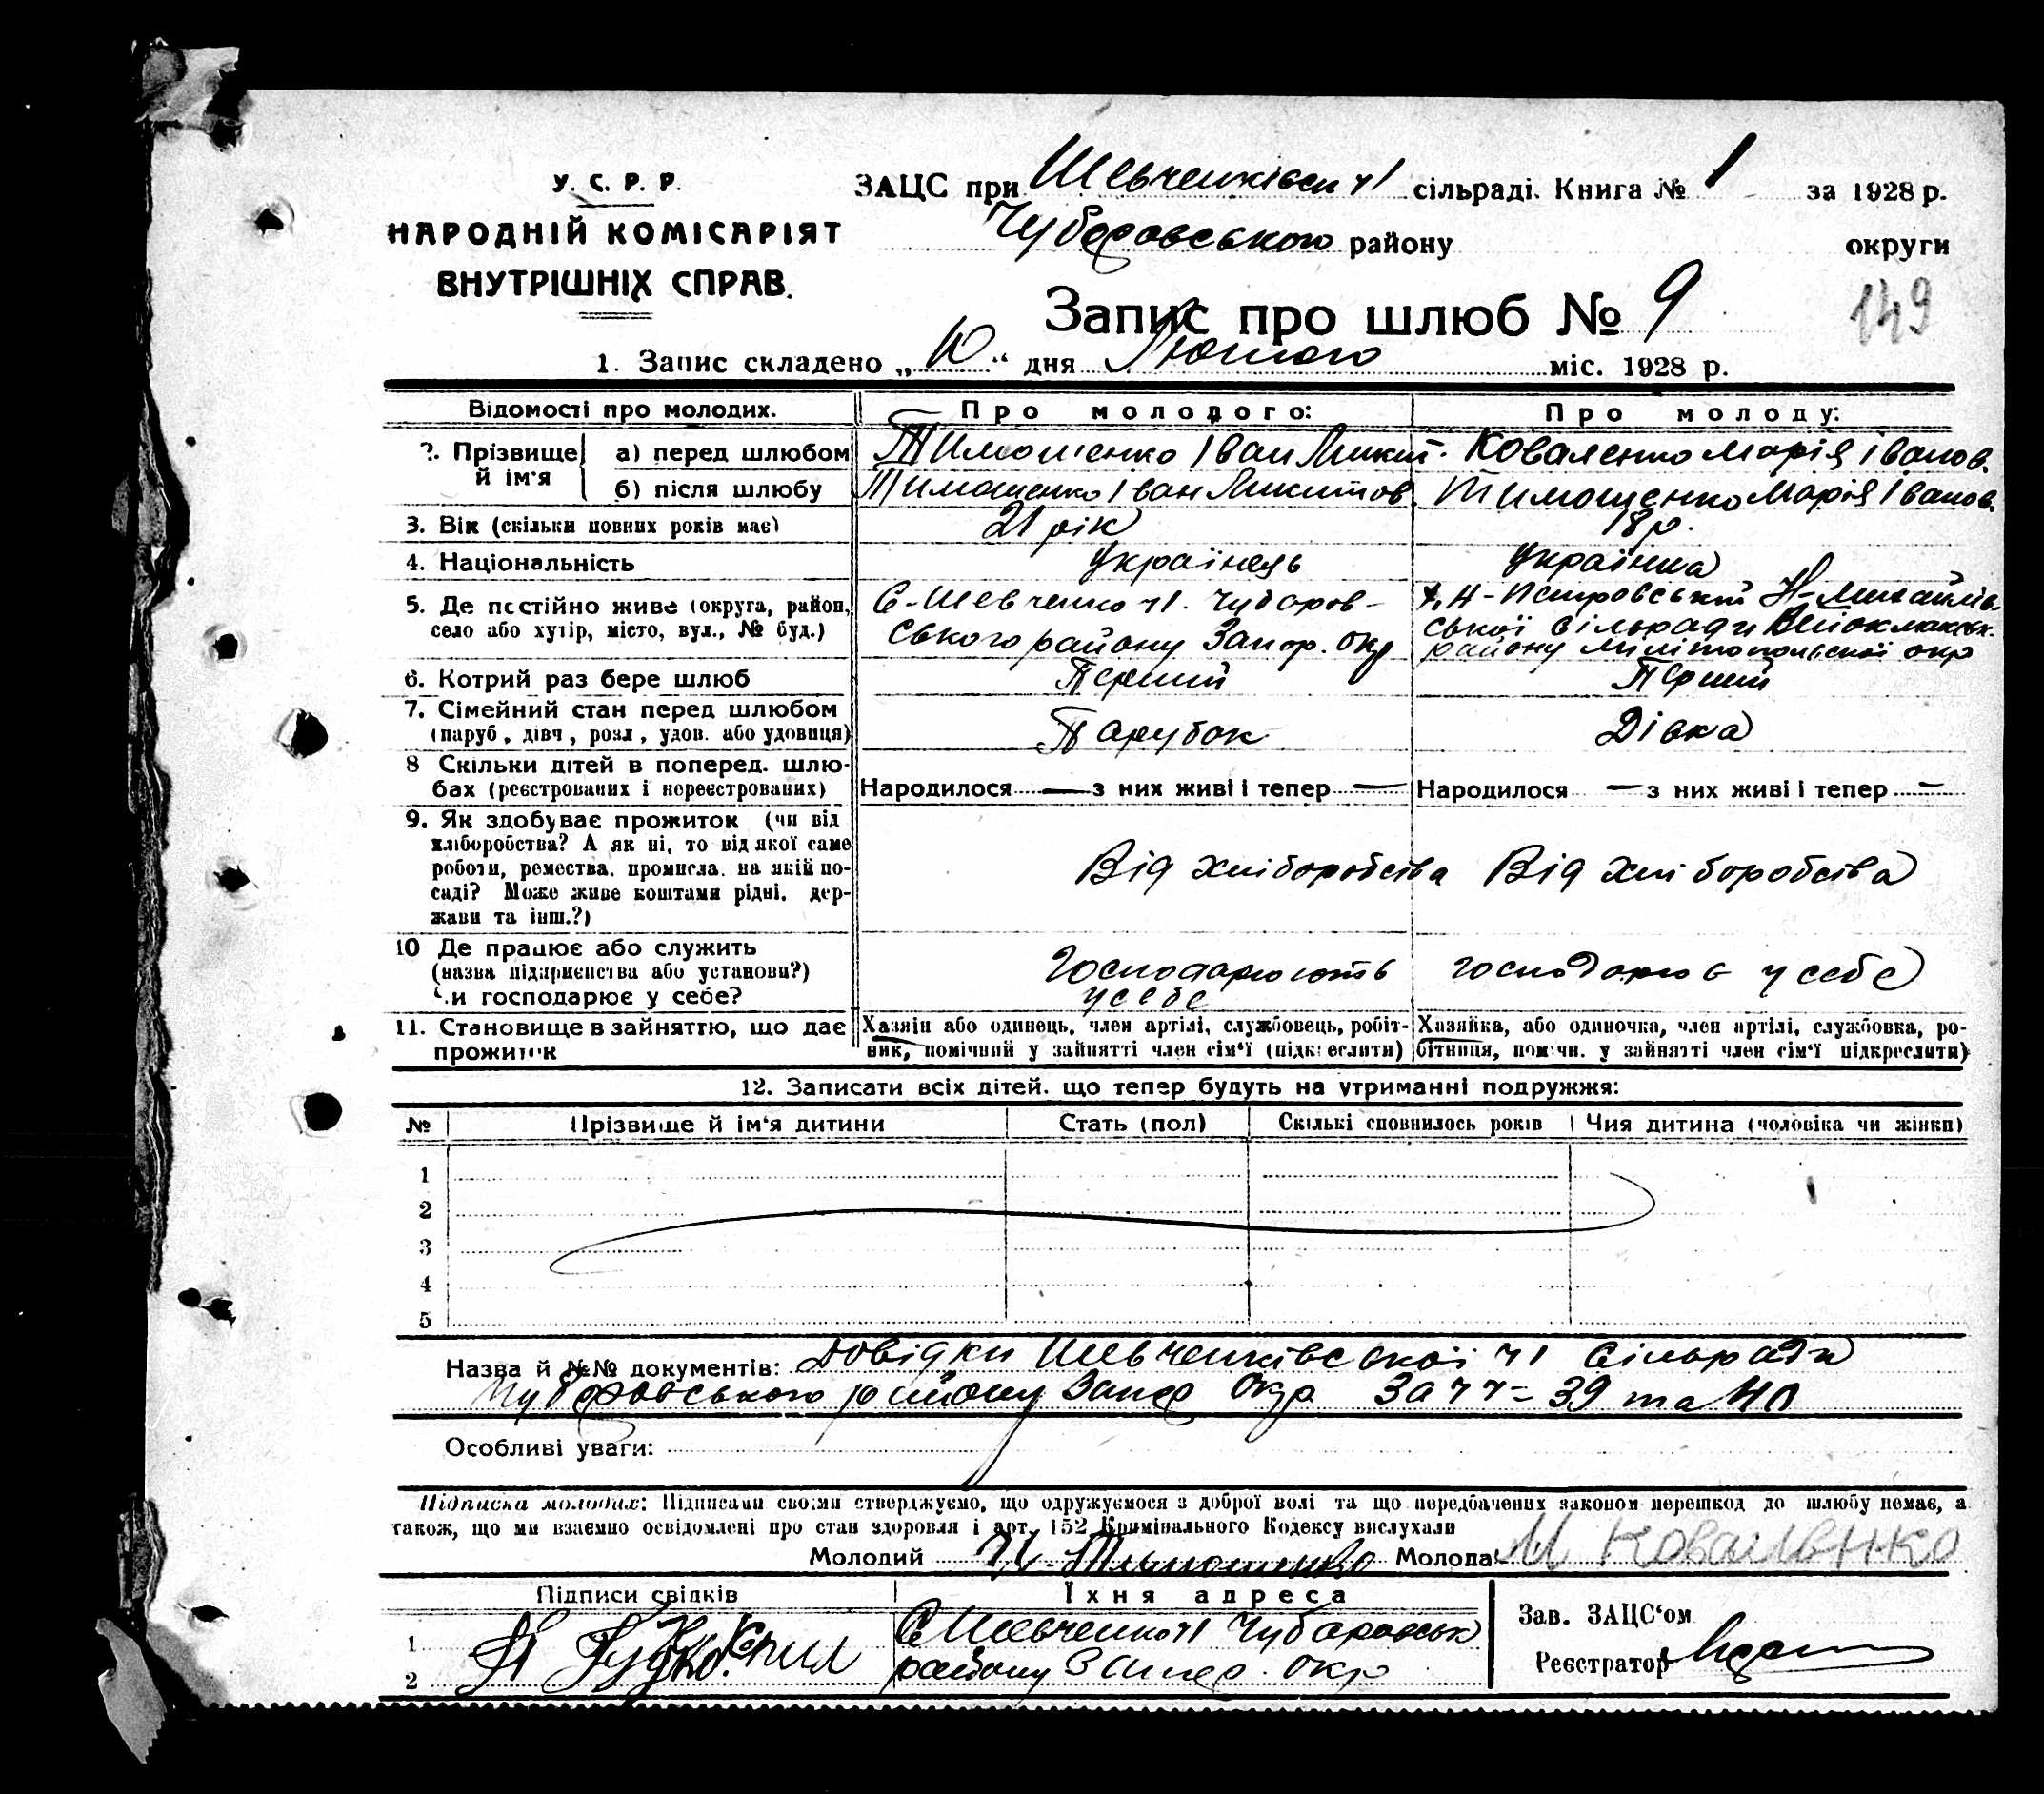 У. С. Р. Р.
НАРОДНІЙ КОМІСАРІЯТ
ВНУТРІШНІХ СПРАВ.
ЗАЦС при Шевченківськ ч1 сільраді. Книга № 1 за 1928 р.
Чубаровського району округи
Запис про шлюб № 9
149
1. Запис складено „10“ дня Лютого міс. 1928 р.
Відомості про молодих. Про молодого: Про молоду:
2. Прізвище й ім'я
а) перед шлюбом Тимошенко Іван Микит. Коваленко Марія Іванов.
б) після шлюбу Тимошенко Іван Микитов. Тимошенко Марія Іванов.
3. Вік (скільки повних років має) 21 рік 18 р.
4. Національність Українець Українка
5. Де постійно живе (округа, район, село або хутір, місто, вул., № буд.)
С-Шевченко ч1. Чубаров-
ського району Запор. окр
Н-Петровський Н-Михайлів-
ської сільради
району Мілітопольської окр
6. Котрий раз бере шлюб Перший Перший
7. Сімейний стан перед шлюбом Парубок Дівка
(паруб, дівч, розл, удов. або удовиця)
8 Скільки дітей в поперед. шлю-
бах (реєстрованих і нереєстрованих) Народилося — з них живі і тепер — Народилося — з них живі і тепер —
9. Як здобуває прожиток (чи від
хліборобства? А як ні, то від якої саме
роботи, ремества, промисла, на якій по-
саді? Може живе коштами рідні, дер-
жави та інш.?)
Від хліборобства Від хліборобства
10 Де працює або служить
(назва підприємства або установи?)
Чи господарює у себе?
Господарюють у себе господарює у себе
11. Становище в зайняттю, що дає
прожиток
Хазяїн або одинець, член артілі, службовець, робіт-
ник, помічний у зайнятті член сім'ї (підкреслити)
Хазяйка, або одиночка, член артілі, службовка, ро-
бітниця, помічн. у зайнятті член сім'ї підкреслити)
12. Записати всіх дітей, що тепер будуть на утриманні подружжя:
№ Прізвище й ім'я дитини Стать (пол) Скількі сповнилось років Чия дитина (чоловіка чи жінки)
1
2
3
4
5
Назва й №№ документів: Довідки Шевченківської ч1 сільради
Чубаровського району Запор окр За чч= 39 та 40
Особливі уваги:
Підписка молодих: Підписами своїми стверджуємо, що одружуємося з доброї волі та що передбачених законом перешкод до шлюбу немає, а
також, що ми взаємно освідомлені про стан здоровля і арт. 152 Кримінального Кодексу вислухали
Молодий И. Тимошенко Молода М Коваленко
Підписи свідків Їхня адреса
1 С Шевченко ч1 Чубаровськ
2 району Запор. окр
Зав. ЗАЦС'ом
Реєстратор